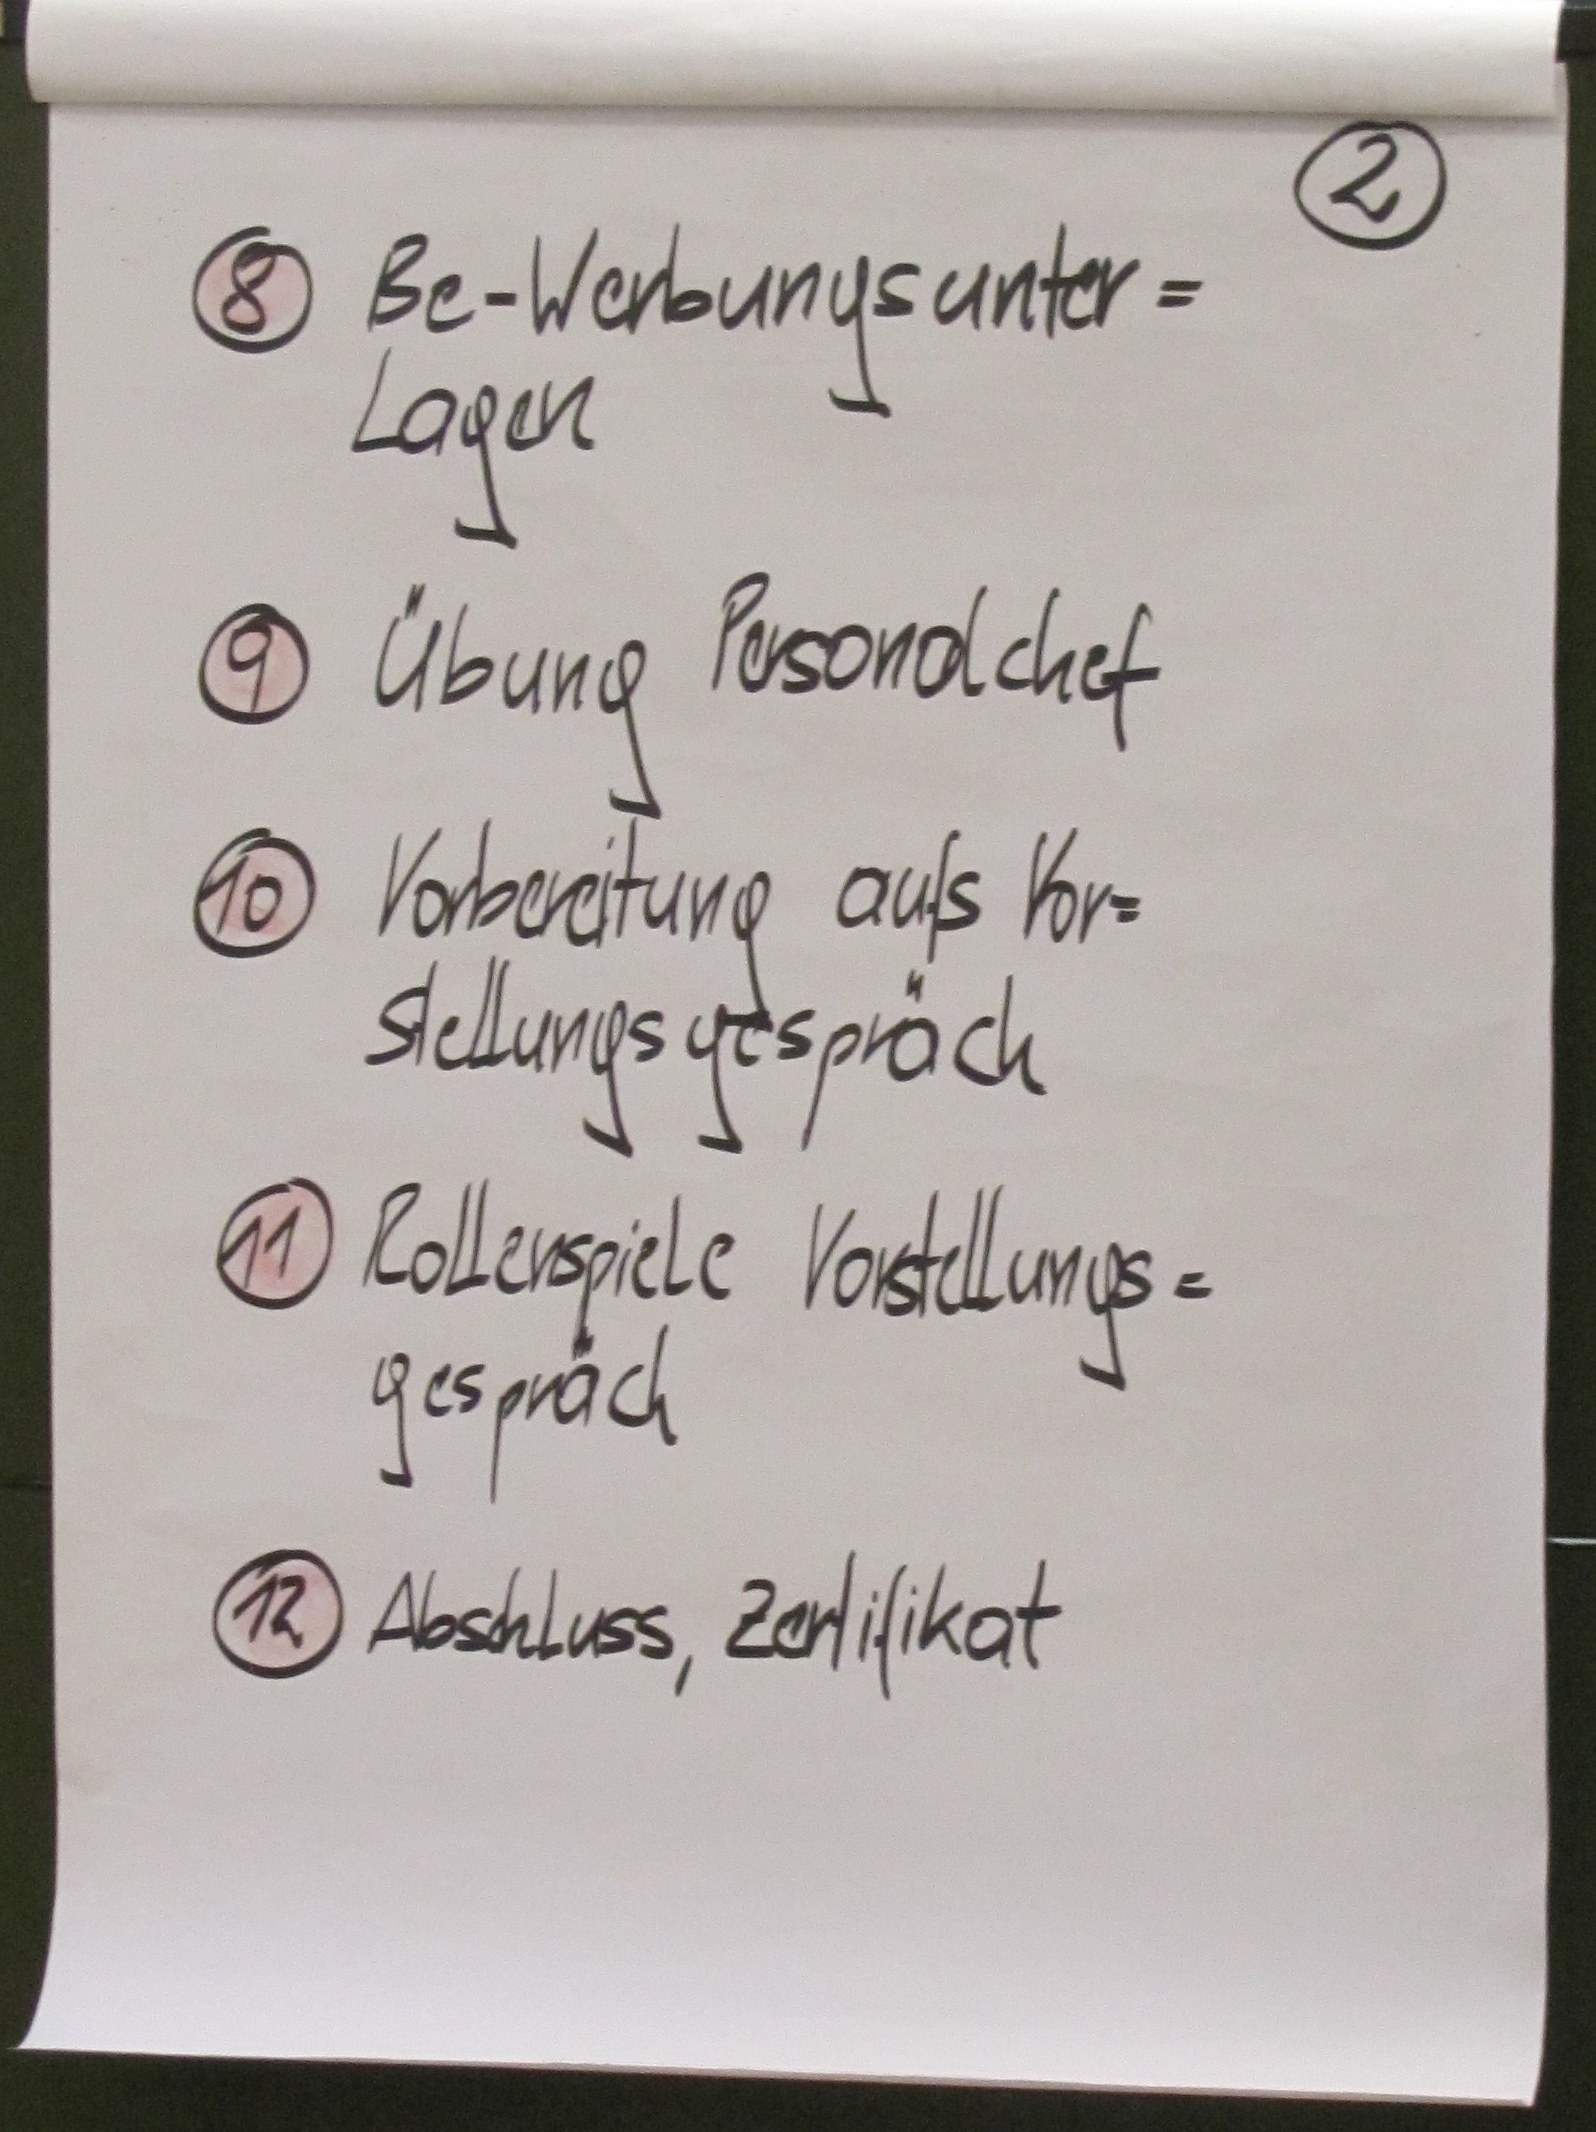 2
8 Be-Werbungsunter=
Lagen
9 Übung Personalchef
10 Vorbereitung aufs Vor=
stellungsgespräch
11 Rollenspiele Vorstellungs=
gespräch
12 Abschluss, Zertifikat